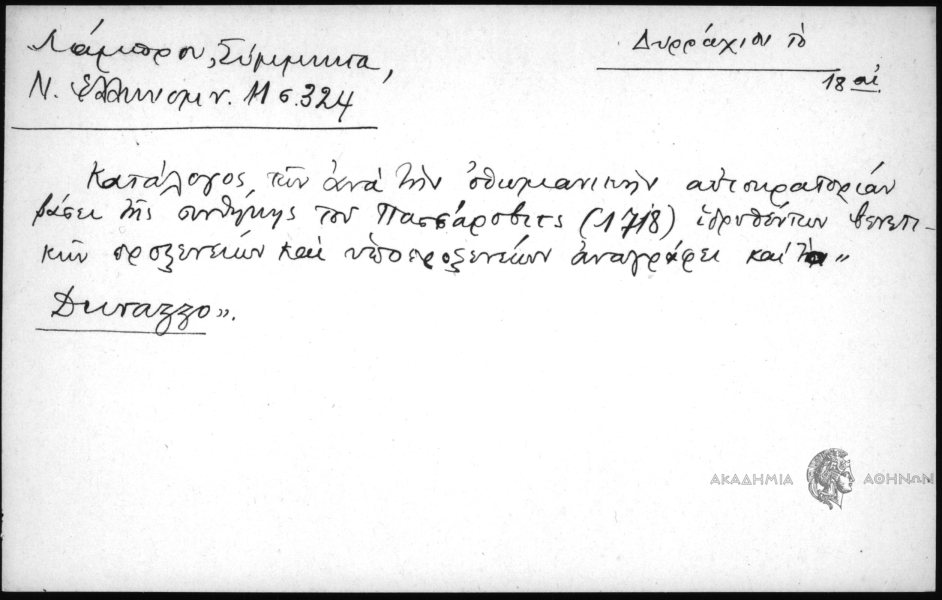 Λάμπρου, Σύμμικτα,
Ν. Ἑλληνομν. 11 σ. 324
Δυρράχιον τὸ
18 αἰ
Κατάλογος τῶν ἀνὰ τὴν ὀθωμανικὴν αὐτοκρατορίαν
βάσει τῆς συνθήκης του Πασσάροβιτς (1718) ἱδρυθέντων βενετι-
κῶν προξενείων καὶ ὑποπροξενείων ἀναγράφει καὶ τὸ "
Durazzo".
ΑΚΑΔΗΜΙΑ ΑΘΗΝΩΝ